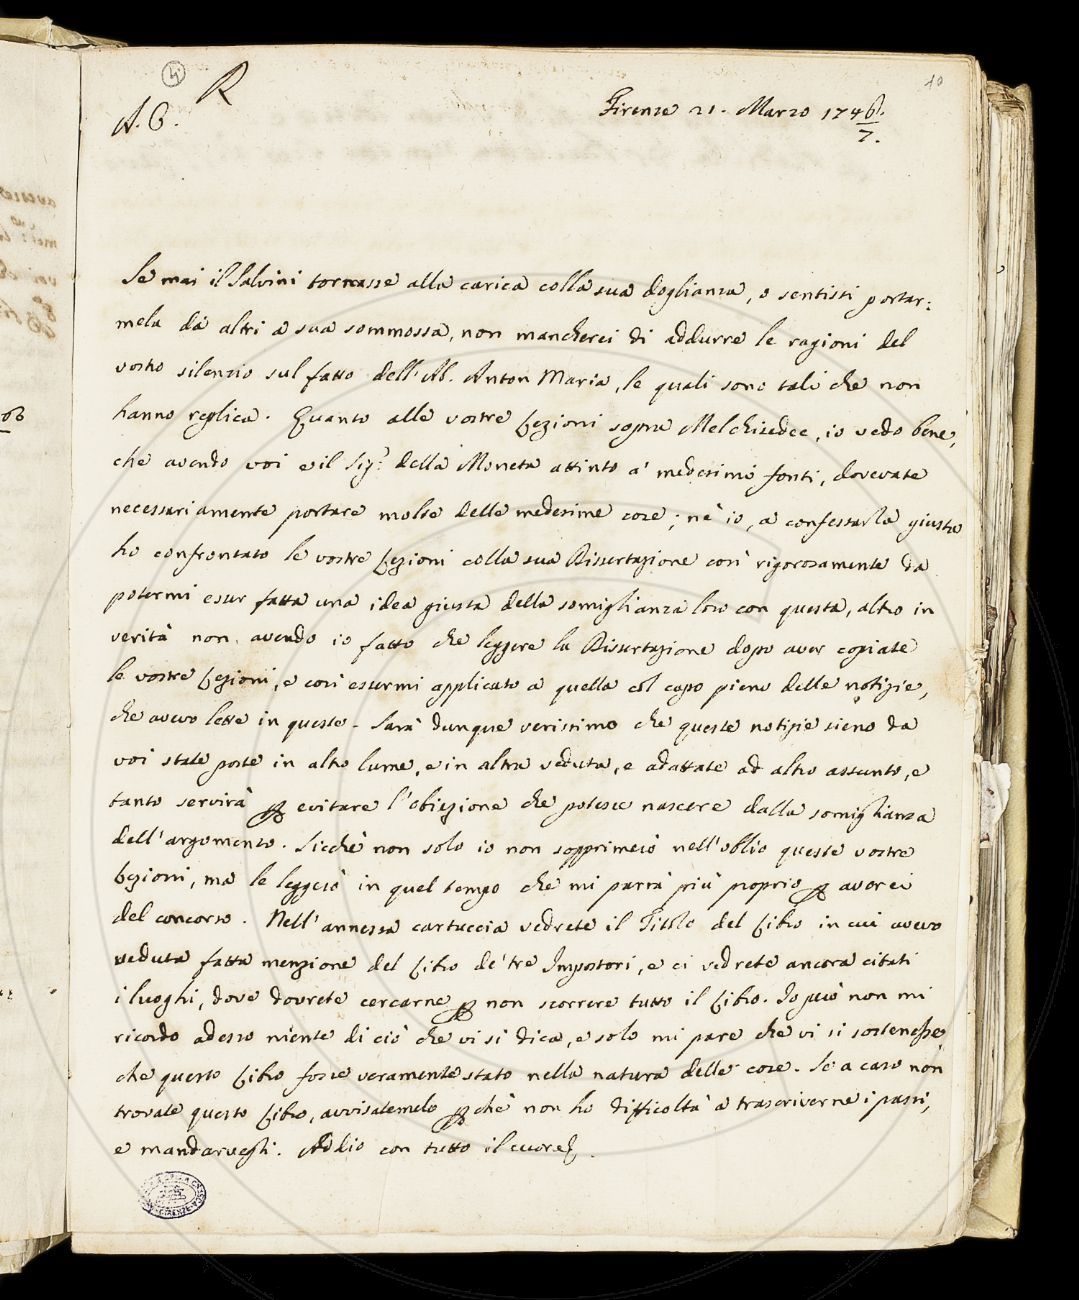 4
R
40
A. C.
Firenze 21. Marzo 1746/7.
Se mai il Salvini tornasse alla carica colla sua doglianza, o sentissi portar:
mela da altri a sua sommossa, non mancherei di addurre le ragioni del
vostro silenzio sul fatto dell'Ab. Anton Maria, le quali sono tali che non
hanno replica. Quanto alle vostre Lezioni sopra Melchisedec, io vedo bene,
che avendo voi e il Sigr. della Moneta attinto a' medesimi fonti, dovevate
necessariamente portare molte delle medesime cose; nè io, a confessarla giusta
ho confrontato le vostre Lezioni colla sua Dissertazione così rigorosamente da
potermi esser fatta una idea giusta della somiglianza loro con questa, altro in
verità non avendo io fatto che leggere la Dissertazione dopo aver copiate
le vostre Lezioni, e così essermi applicato a quella col capo pieno delle notizie,
che avevo lette in queste. Sarà dunque verissimo che queste notizie sieno da
voi state poste in altro lume, e in altra veduta, e adattate ad altro assunto, e
tanto servirà p evitare l'obiezione che potesse nascere dalla somiglianza
dell'argomento. Sicchè non solo io non sopprimerò nell'oblio queste vostre
Lezioni, ma le leggerò in quel tempo che mi parrà più proprio p averci
del concorso. Nell'annessa cartuccia vedrete il Titolo del Libro in cui avevo
veduta fatta menzione del Libro de' tre Impostori, e ci vedrete ancora citati
i luoghi, dove dovrete cercarne p non scorrere tutto il Libro. Io però non mi
ricordo adesso niente di ciò che vi si dica, e solo mi pare che vi si sostenesse,
che questo Libro fosse veramente stato nella natura delle cose. Se a caso non
trovate questo Libro, avvisatemelo pchè non ho difficoltà a trascriverne i passi,
e mandarvegli. Addio con tutto il cuore.